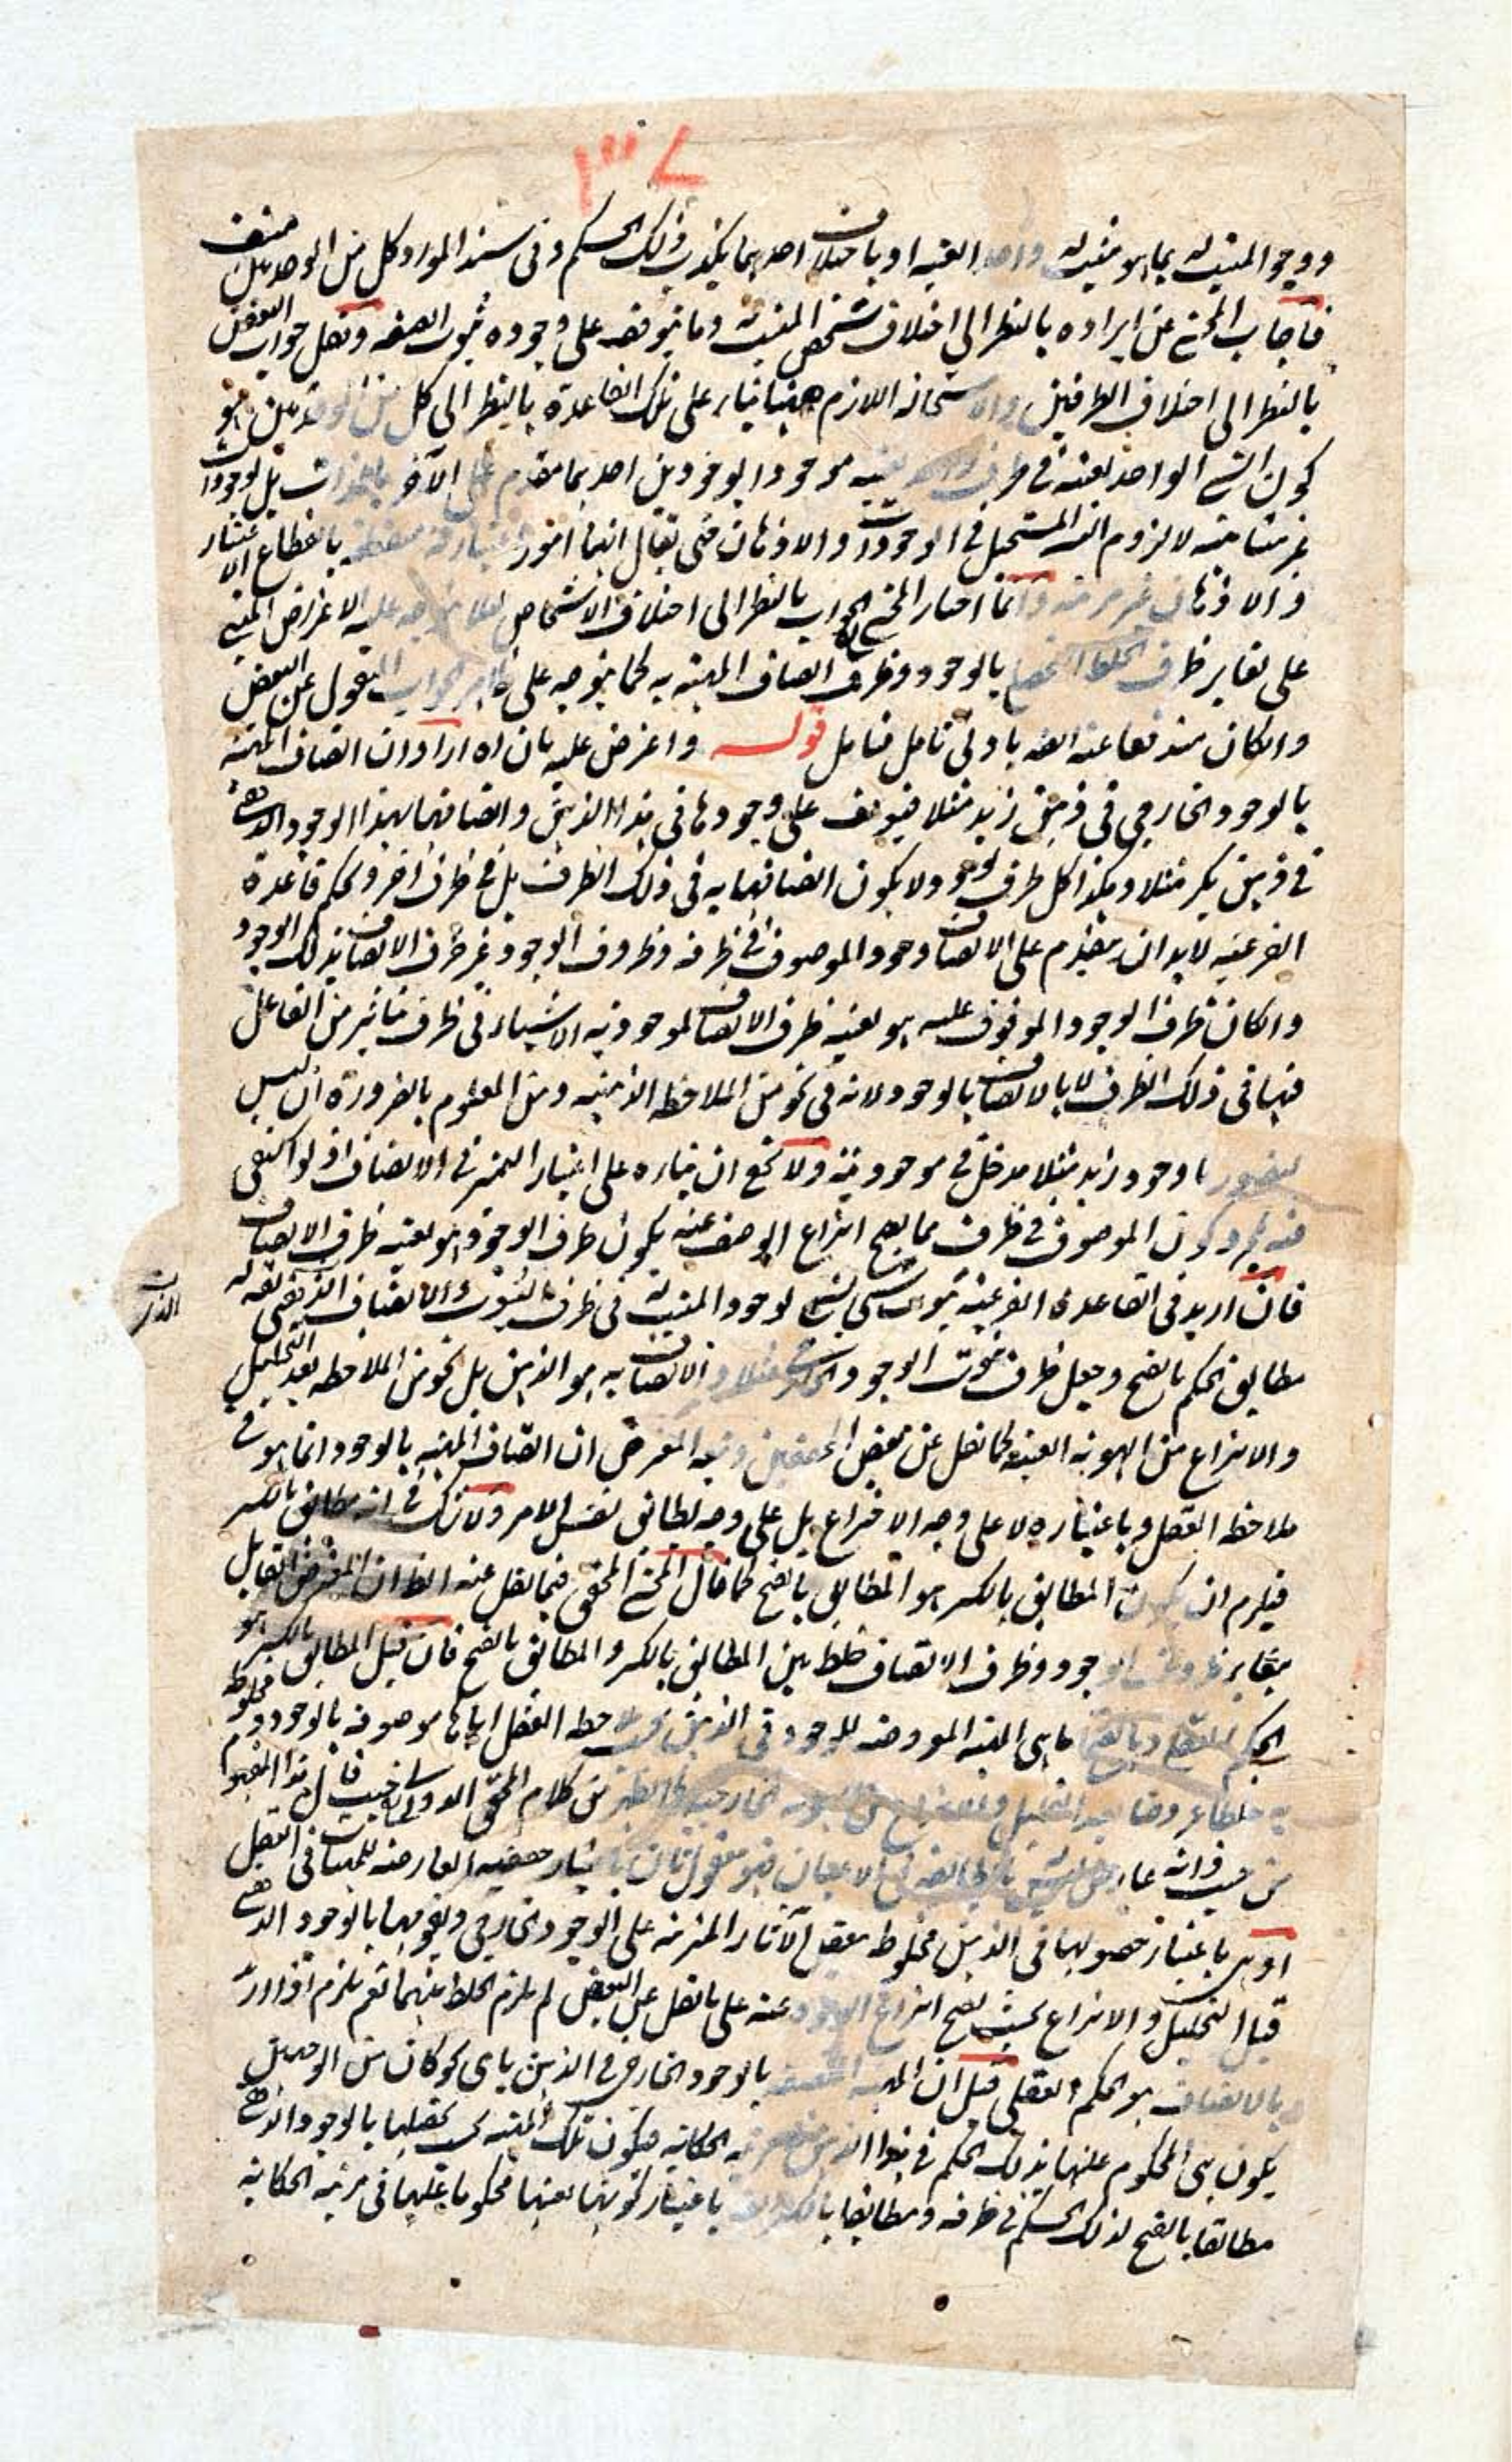 ٣٧
ووجود المثبت له بما هو مثبت له واحد بعينه او باختلاف احدهما يكذب ذلك الحكم وفى سند المواد كل من الوحدتين منتف
فاجاب المحشى عن ايراده بالنظر الى اختلاف شخص المثبت له وما يتوقف على وجوده ثبوت الصفه ونقل جواب البعض
بالنظر الى اختلاف الظرفين والاستحاله اللازم ههنا بناء على تلك القاعدة بالنظر الى كل من الوحدتين هو
كون الشىء الواحد بعينه فى ظرف واحد بعينه موجودا بوجودين احدهما مقدم على الآخر بالذات بل بوجودات
غير متناهيه لا لزوم التسلسل المستحيل فى الوجودات والاذهان حتى يقال انها امور اعتباريه منقطعه بانقطاع الاعتبار
والاذهان غير مرتبه وانما اختار المحشى الجواب بالنظر الى اختلاف الاشخاص لئلا يتوجه عليه الاعتراض المبنى
على تغاير ظرف الخلط بالوجود وظرف اتصاف المهيه به كما يتوجه على ظاهر الجواب المنقول عن البعض
وان كان مندفعا عنه ايضا بادنى تامل فتامل قوله واعترض عليه بان اه اراد ان اتصاف المهيه
بالوجود الخارجى فى ذهن زيد مثلا فيتوقف على وجودها فى هذا الذهن واتصافها بهذا الوجود الذهنى
فى ذهن بكر مثلا وهكذا كل ظرف لوجود ولا يكون اتصافها به فى ذلك الظرف بل فى ظرف آخر وبحكم قاعدة
الفرعيه لا بد ان يتقدم على الاتصاف وجود الموصوف فى ظرفه وظروف الوجود غير ظرف الاتصاف بذلك الوجود
وان كان ظرف الوجود الموقوف عليه هو بعينه ظرف الاتصاف لموجوديه الاشياء فى ظرف بتاثير من الفاعل
فيها فى ذلك الظرف لا بالاتصاف بالوجود ولانه فى نحو من الملاحظه الذهنيه ومن المعلوم بالضرورة ان ليس
لتصور وجود زيد مثلا مدخل فى موجوديته ولا يخفى ان بناءه على اعتبار التميز فى الاتصاف اذ لو اكتفى
فيه بمجرد كون الموصوف فى ظرف مما يصح انتزاع الوصف عنه يكون ظرف الوجود هو بعينه ظرف الاتصاف
فان اريد فى القاعدة الفرعيه ثبوت شىء لشىء لوجود المثبت له فى ظرف الثبوت والاتصاف الذى يعنى بقوله
مطابق الحكم بالفتح وجعل ظرف ثبوت الوجود الخارجى مثلا والاتصاف به هو الذهن بل نحو من الملاحظه بعد التحليل
والانتزاع من الهويه العينيه كما نقل عن بعض المحققين وتبعه المعترض ان اتصاف المهيه بالوجود انما هو فى
ملاحظه العقل وباعتباره لا على وجه الاختراع بل على وجه يطابق نفس الامر ولا شك فى انه مطابق بالكسر
فيلزم ان يكون المطابق بالكسر هو المطابق بالفتح كما قال المحشى المحقق فيما نقل عنه الظ ان المعترض القايل
بتغاير ظرف الوجود وظرف الاتصاف خلط بين المطابق بالكسر والمطابق بالفتح فان قيل المطابق بالكسر هو
الحكم العقلى وبالفتح ما هى المهيه المعروضه للوجود فى الذهن بملاحظه العقل اياها موصوفه بالوجود ومخلوطه
به خلطا عروضا بعد التحليل والانتزاع من الهويه الخارجيه كما يظهر من كلام المحقق الدوانى حيث قال هذا المفهوم
من حيث ذاته باعتبار حقيقته العارضه للمهيات فى العقل
اوهى باعتبار حصولها فى الذهن مخلوطه الآثار المترتبه على الوجود الخارجى وتقومها بالوجود الذهنى
قبل التحليل والانتزاع بحيث يصح انتزاع الوجود عنه على ما نقل عن البعض لم يلزم الخلط بينهما نعم يلزم اذا اراد
بالاتصاف هو الحكم العقلى قيل ان المهيه المتصفه بالوجود الخارجى فى الذهن باى نحو كان من الوجهين
يكون هى المحكوم عليها بذلك الحكم فى هذا الذهن فى مرتبه الحكايه فيكون تلك المهيه بحسب تحققها بالوجود الذهنى
مطابقا بالفتح لذلك الحكم فى ظرفه ومطابقا بالكسر له باعتبار كونها بعينها محكوما عليها فى مرتبه الحكايه